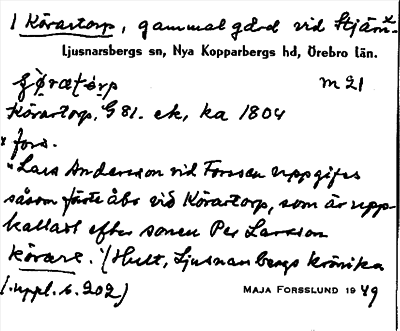 1 Körartorp, gammal gård vid Stjärn-
Ljusnarsbergs sn, Nya Kopparbergs hd, Örebro län.
m 21
Körartorp, G 81. ek, ka 1804
* fors.
"Lars Andersson vid Forssen uppgifves
såsom förste åbo vid Körartorp, som är upp-
kalladt efter sonen Per Larsson
Körare." (Hult, Ljusnarsbergs krönika
(.uppl. s. 202)
MAJA FORSSLUND 1949